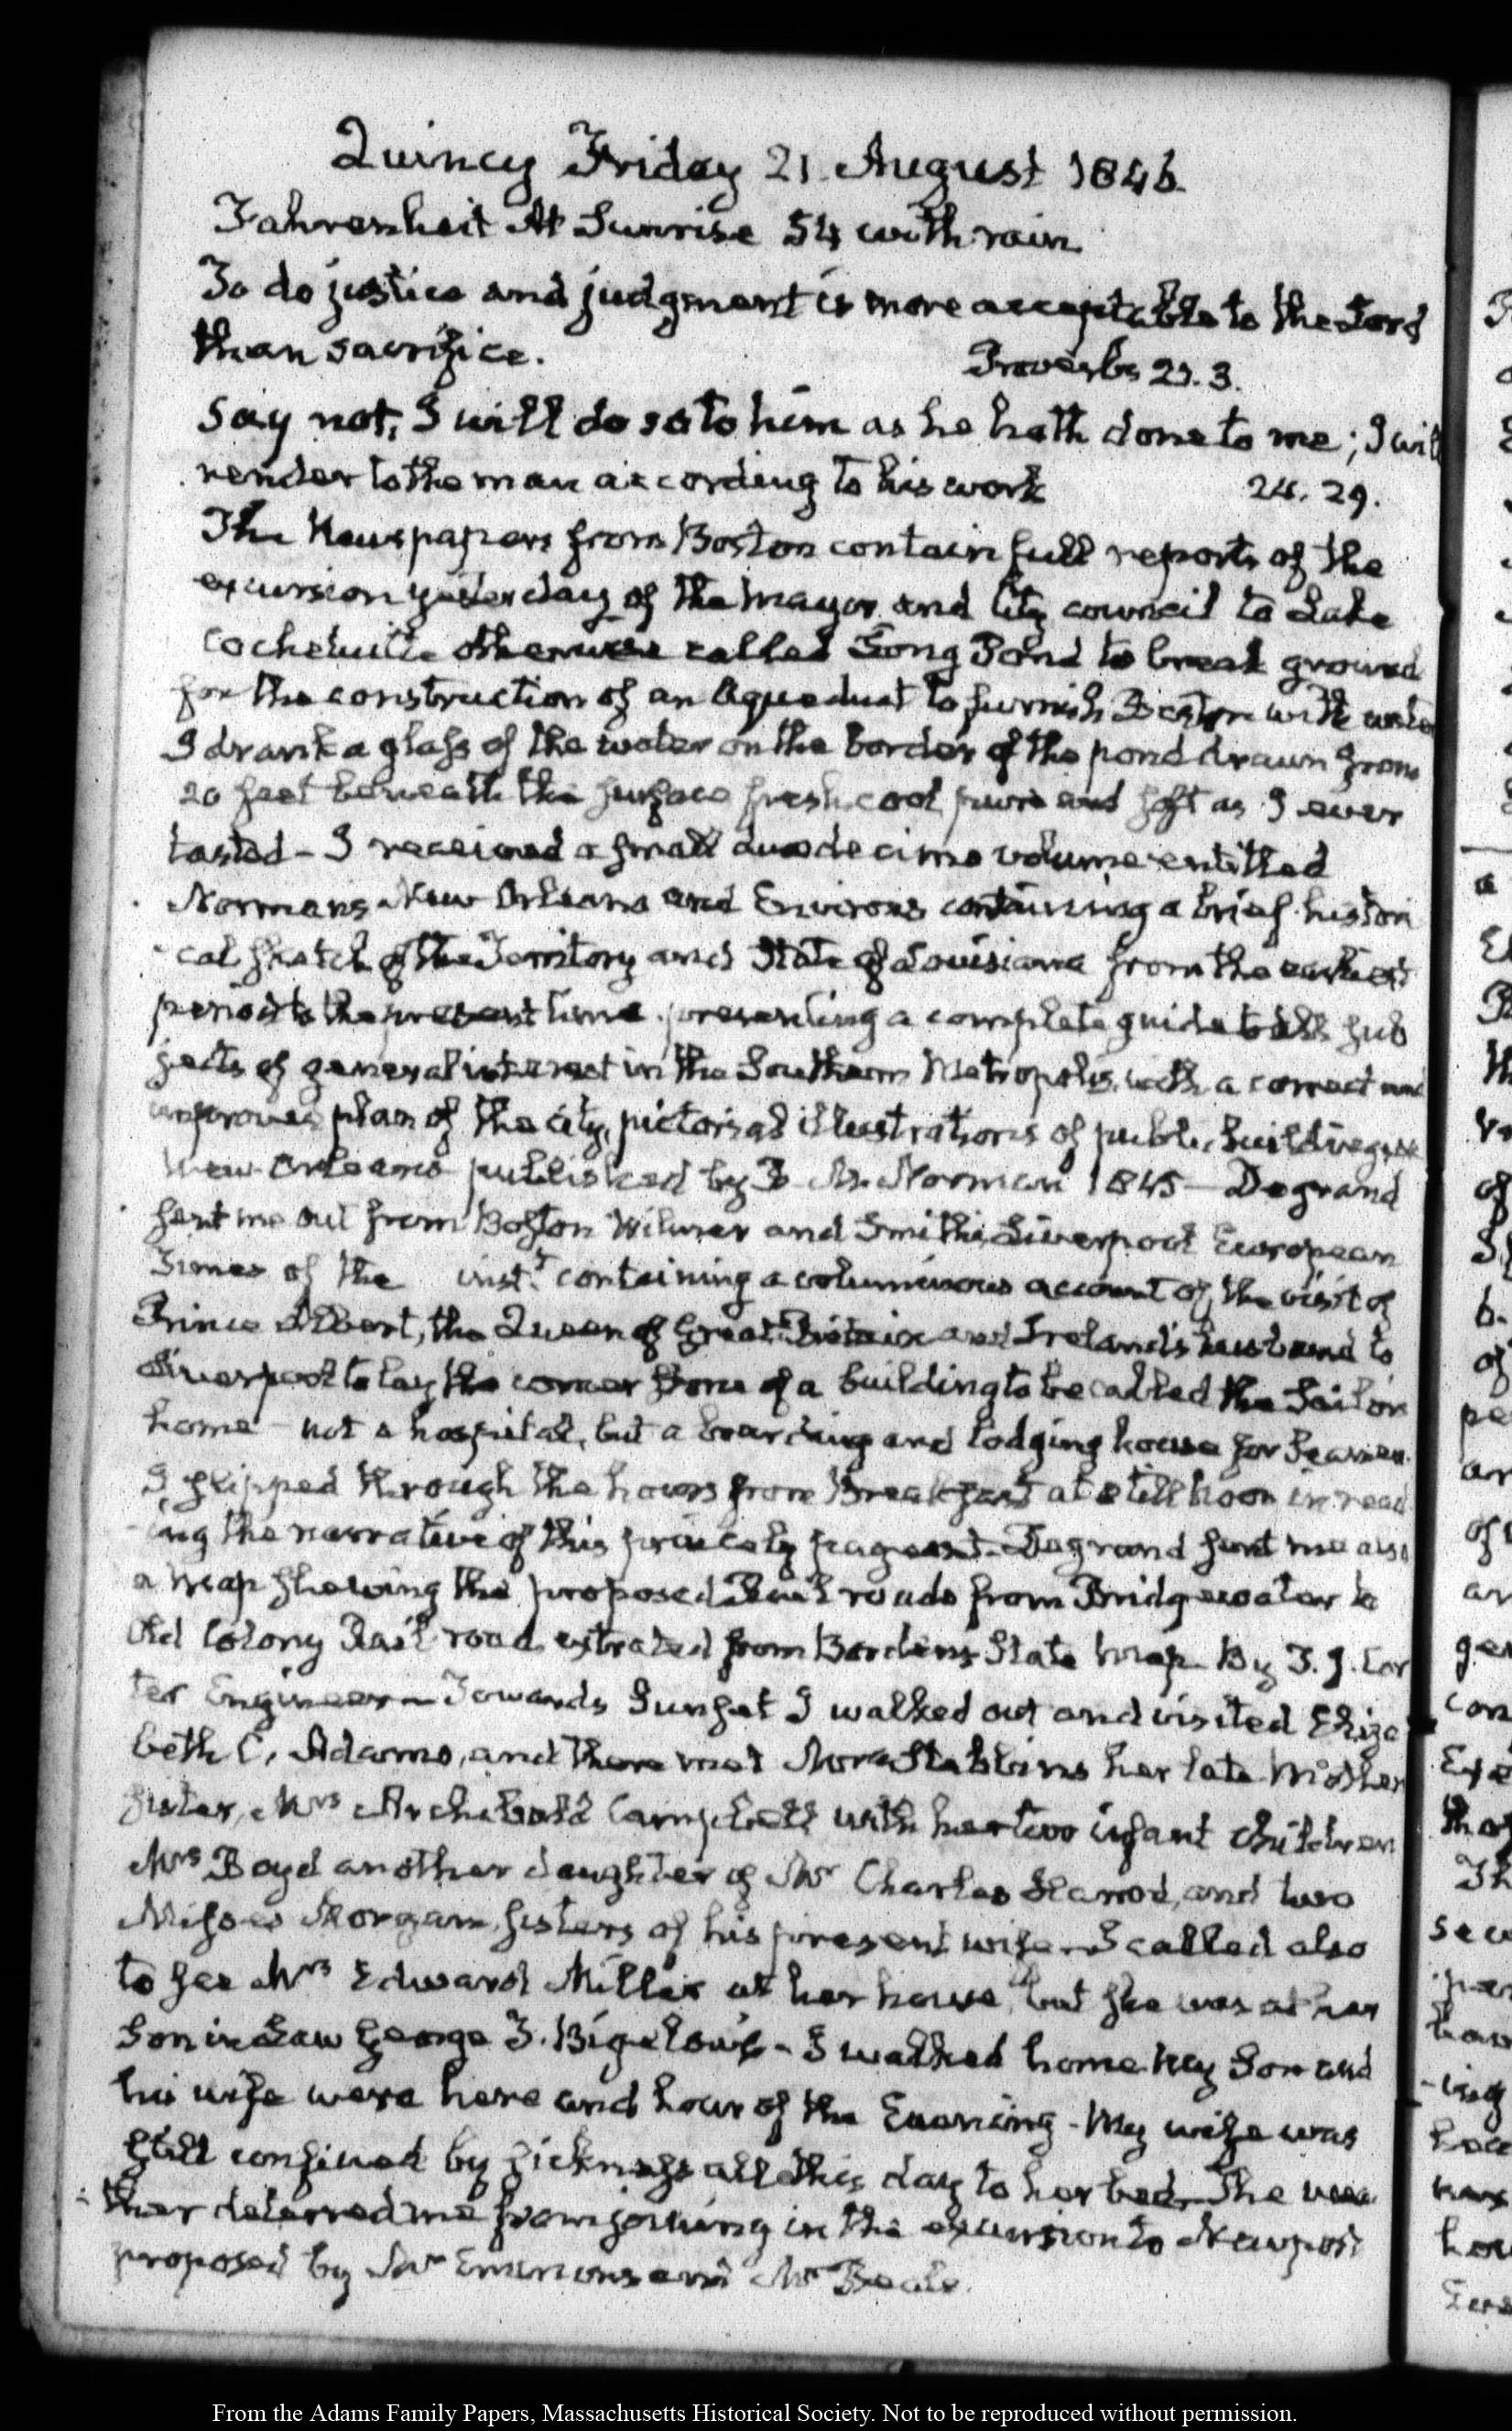 Quincy Friday 21. August 1846.
Fahrenheit At Sunrise 54 with rain
To do justice and judgment is more acceptable to the Lord
than sacrifice. Proverbs 21. 3.
Say not, I will do so to him as he hath done to me; I will
render to the man according to his work 24. 29.
The Newspapers from Boston contain full reports of the
excursion yesterday of the mayor and City council to Lake
Cochetuite otherwise called Long Pond to break ground
for the construction of an Aqueduct to furnish Boston with water
I drank a glass of the water on the border of the pond drawn from
20 feet beneath the surface fresh cool pure and soft as I ever
tasted – I received a small duodecimo volume entitled
Normans New Orleans and Environs containing a brief histori
cal sketch of the Territory and State of Louisiana from the earliest
period to the present time. presenting a complete guide to all sub
jects of general interest in the Southern Metropolis, with a correct and
improved plan of the city, pictorial illustrations of public buildings
New Orleans published by B. M. Norman 1845 – Degrand
sent me out from Boston Wilmer and Smith's Liverpool European
Times of the inst.t containing a voluminous account of the visit of
Prince Albert, the Queen of Great Britain and Ireland's husband to
Liverpool to lay the corner stone of a building to be called the Sailors
home – not a hospital, but a boarding and lodging house for Seamen.
I slipped through the hours from Breakfast at till noon in read
ing the narrative of this princely pageant – Degrand sent me also
a map shewing the proposed Rail roads from Bridgewater to
Old Colony Rail road extracted from Bordens State map. By T. J. Car
ter Engineer – Towards Sunset I walked out and visited Eliza
beth C. Adams, and there met Mrs Stebbins her late Mother
sister, Mrs Archibald Campbell with her two infant children
Mrs Boyd another daughter of Mr Charles Harrod, and two
Misses Morgan, sisters of his present wife – I called also
to see Mrs Edward Miller at her house, but she was at her
Son in Law George T. Bigelow's – I walked home. My Son and
his wife were here and hour of the Evening – My wife was
still confined by sickness all this day to her bed. The wea
ther deterred me from joining in the excursion to Newport
proposed by Mr Emmons and Mr Beale.
From the Adams Family Papers, Massachusetts Historical Society. Not to be reproduced without permission.